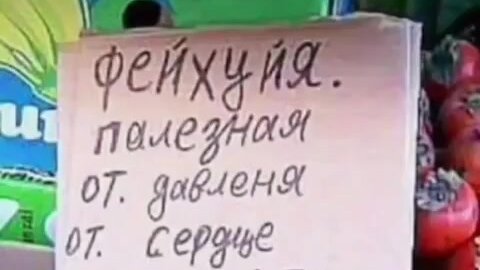 фейхуйя.
палезная
от. давленя
от. сердце